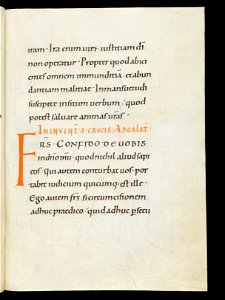 iram · Ira enim viri · iustitiam di
non operatur · Propter quod abici
entes omnem immunditia & abun
dantiam malitiae · In mansuetudi
suscipite insitum verbum · quod
potest salvare animas vras ·
IN INVENT S CRUCIS AD GALAT ·
FRS · CONFIDO DE VOBIS
in dno · quod nichil aliud sapi
etis · Qui autem conturbat vos · por
tabit iudicium quicumq · est ille ·
Ego autem frs · si circumcisionem
adhuc praedico · quid adhuc psecu